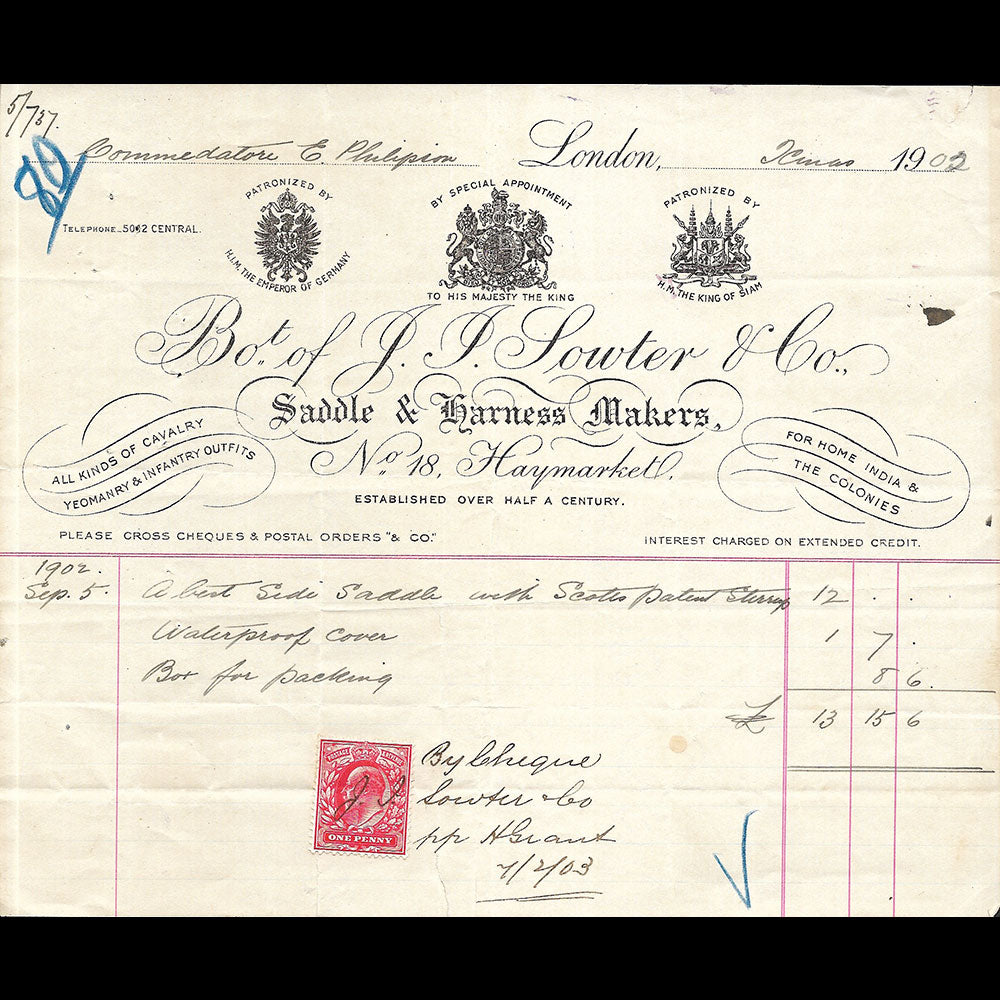 5/7 57.
80
Commedatore E Philipson London, Xmas 1902
TELEPHONE 5002 CENTRAL.
PATRONIZED BY
H.I.M. THE EMPEROR OF GERMANY
BY SPECIAL APPOINTMENT
TO HIS MAJESTY THE KING
PATRONIZED BY
H.M. THE KING OF SIAM
Bot. of J. J. Sowter & Co.,
Saddle & Harness Makers,
No 18, Haymarket.
ESTABLISHED OVER HALF A CENTURY.
ALL KINDS OF CAVALRY
YEOMANRY & INFANTRY OUTFITS
FOR HOME INDIA &
THE COLONIES
PLEASE CROSS CHEQUES & POSTAL ORDERS "& CO." INTEREST CHARGED ON EXTENDED CREDIT.
1902.
Sep. 5. A best Side Saddle with Scotts Patent Stirrup 12 . .
Waterproof Cover 1 7 .
Box for packing 8 6.
£ 13 15 6
POSTAGE & REVENUE
ONE PENNY
By Cheque
Sowter & Co
pp H Grant
7/2/03